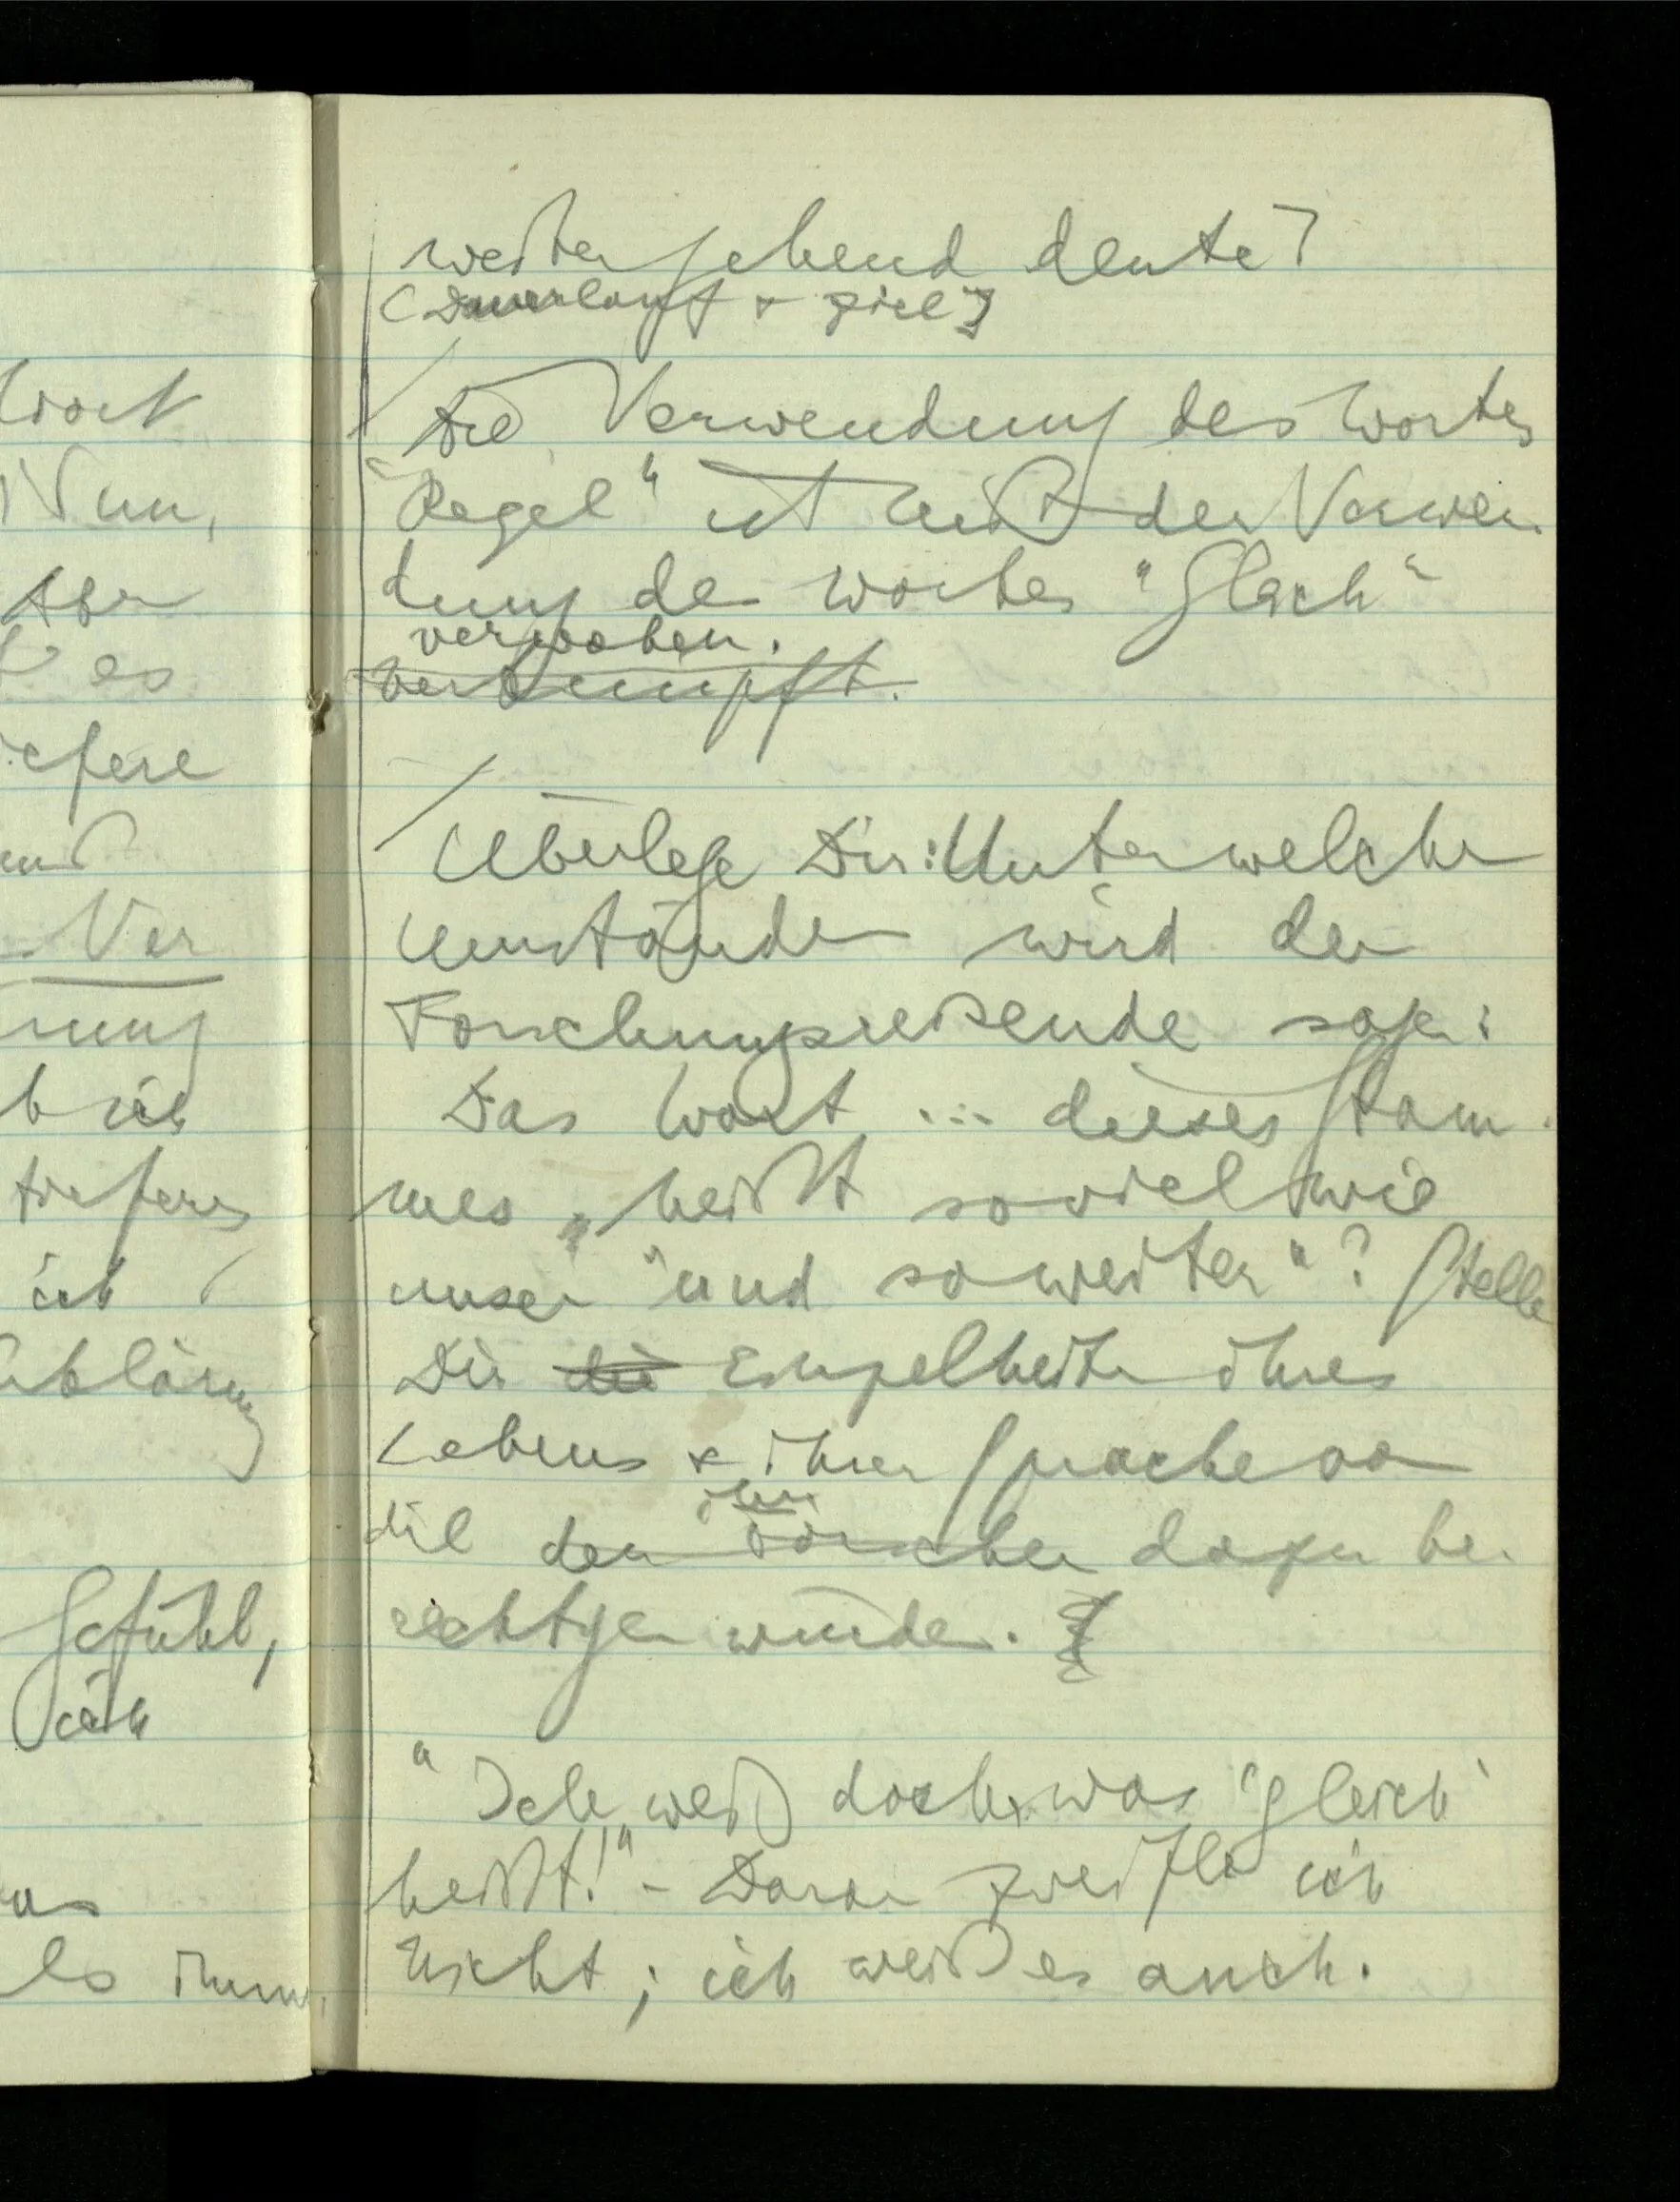 weitergehend deute?
(Dauerlauf + Ziel)
Die Verwendung des Wortes
"Regel" ist mit der Verwen
dung des Wortes "gleich"
verwoben.
verknüpft.
Überlege Dir: Unter welchen
Umständen wird der
Forschungsreisende sagen:
Das Wort ... dieses Stam-
mes „heißt soviel wie
unser "und so weiter"? Stelle
Dir die Einzelheiten ihres
Lebens & ihrer Sprache vor
ihn
die den Forscher dazu be
rechtigen würden.
"Ich weiß doch, was 'gleich'
heißt!" - Daran zweifle ich
nicht; ich weiß es auch.
Wort
Nun,
Aber
es
tiefere
und
Ver
nung
ich
tieferes
ich
Erklärung
Gefühl,
ich